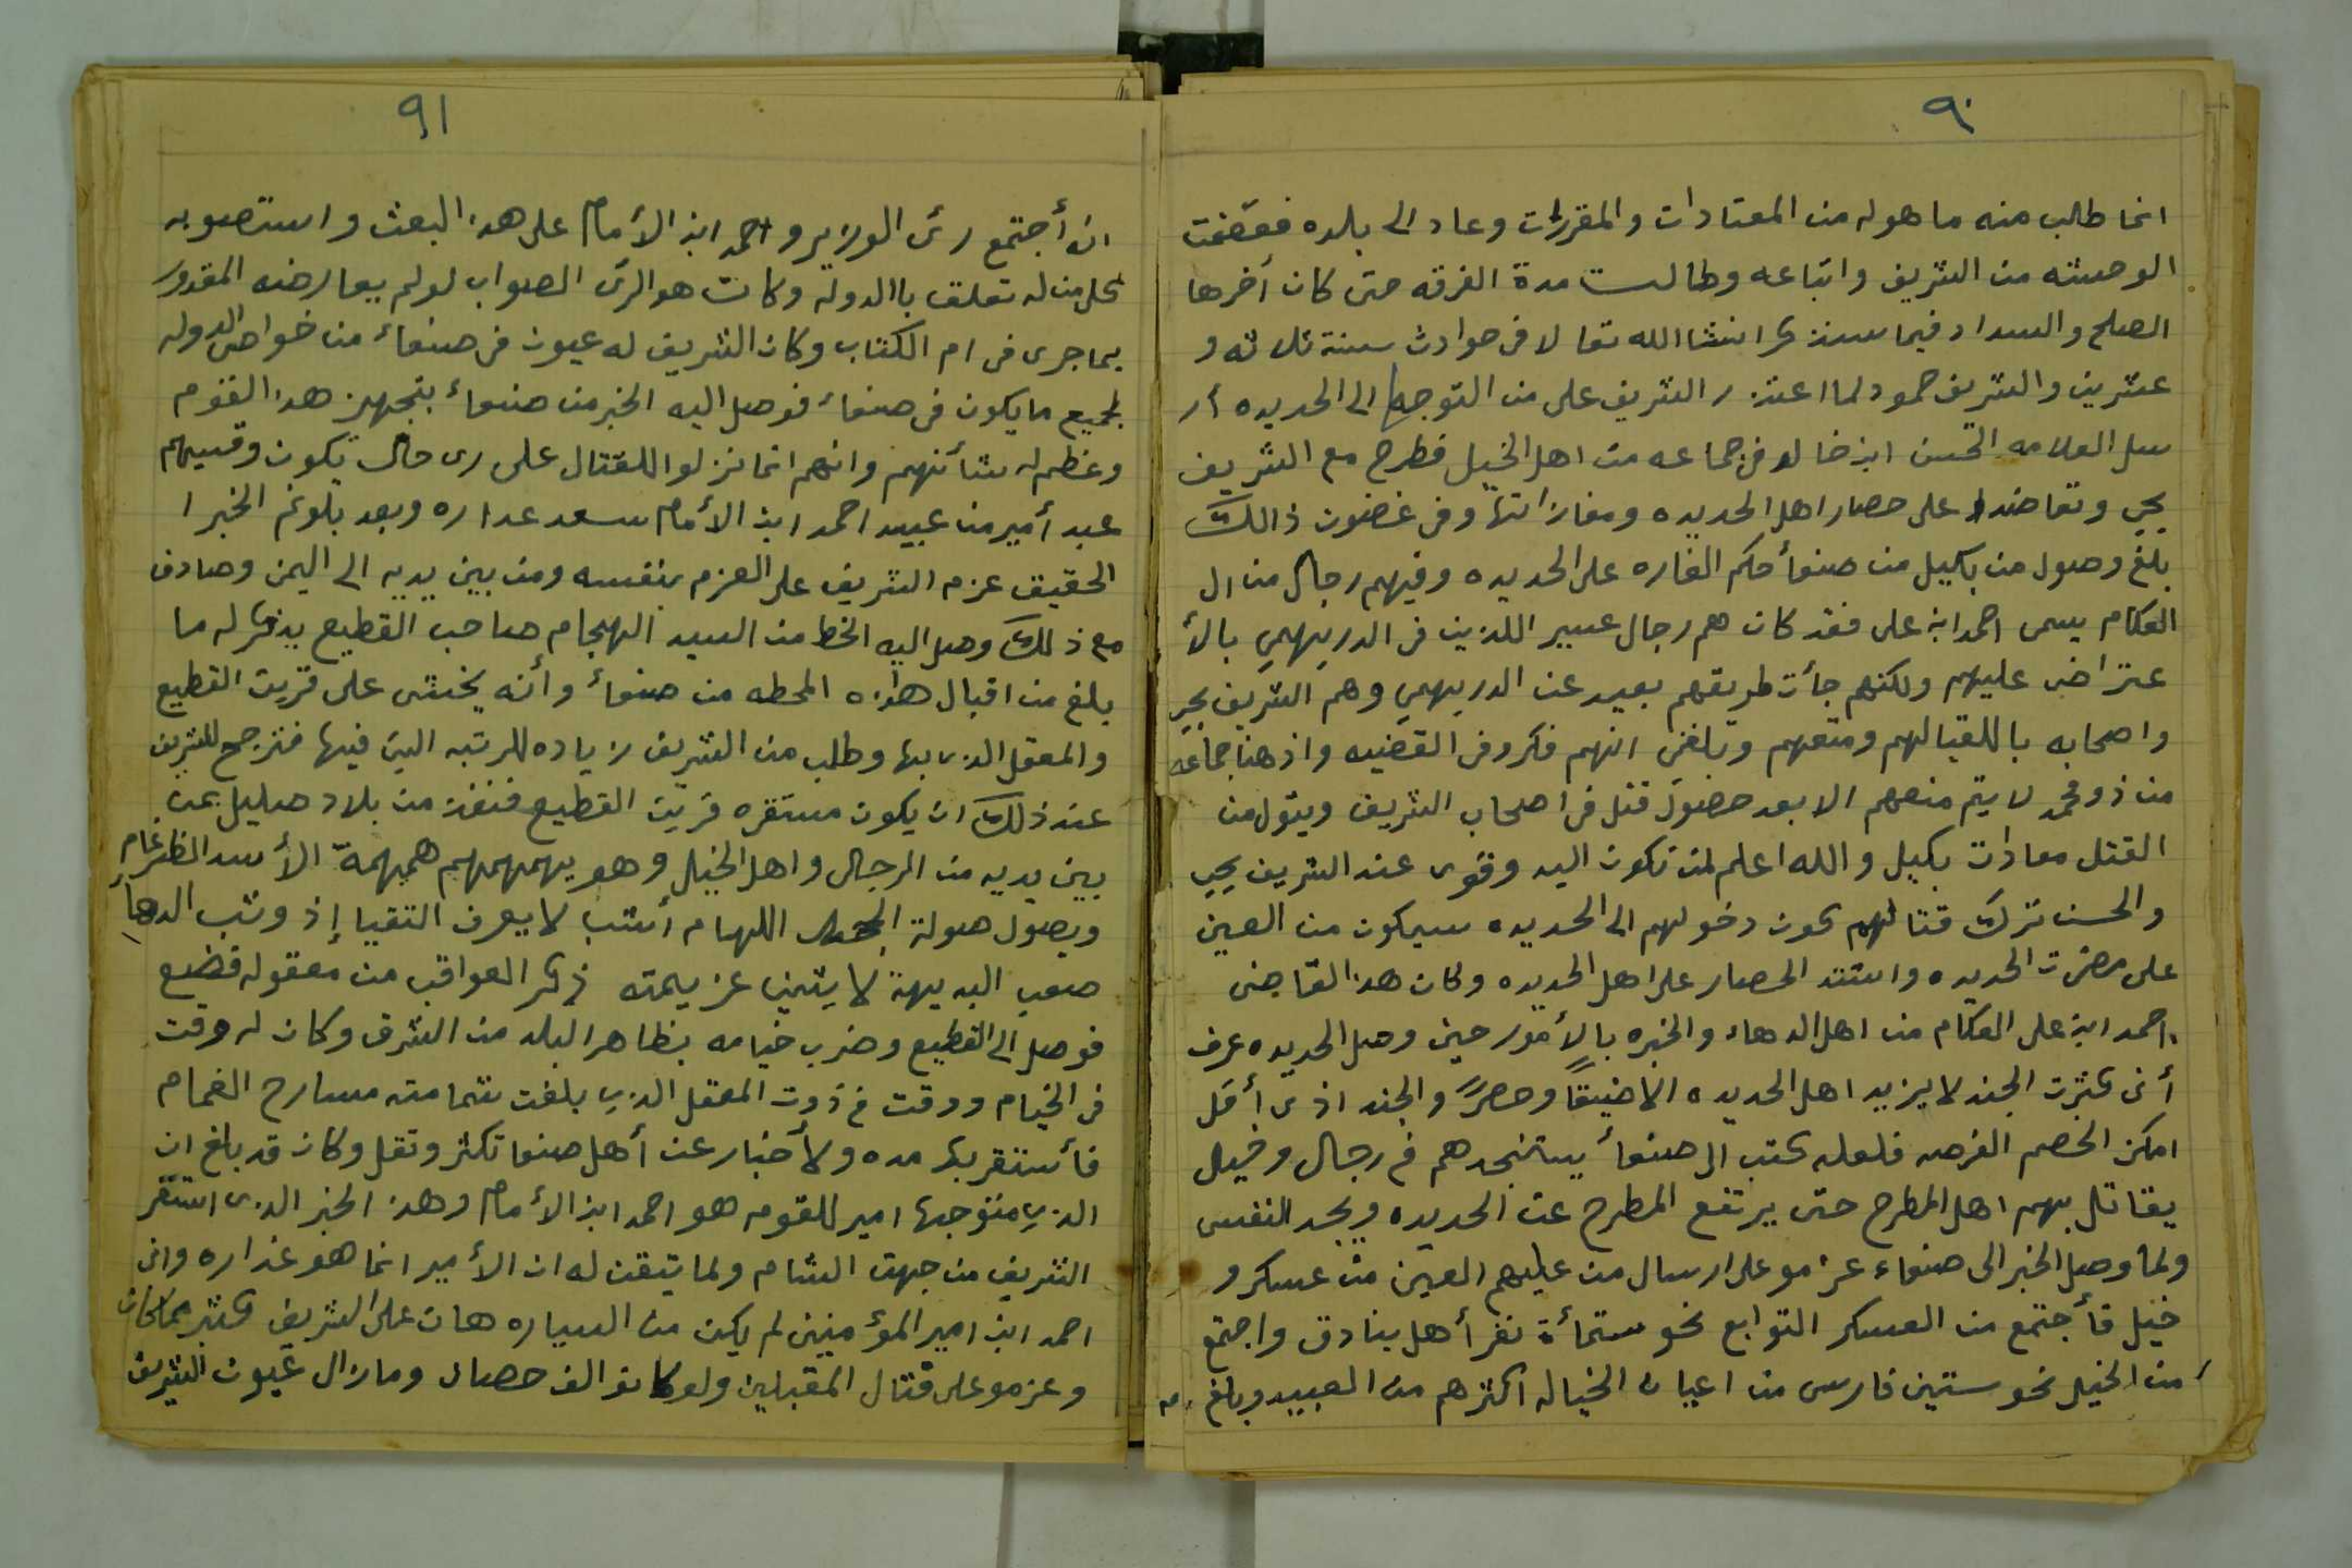 ٩٠
انما طالب منه ما هو له من المعتادات والمقررات وعاد الى بلده فعضمت
الوحشته من الشريف واتباعه وطالت مدة الفرقه حتى كان أخرها
الصلح والسداد فيما سنذكر انشا الله تعا لا فى حوادث سنة ثلاثه و
عشرين والشريف حمود لما اعتذر الشريف على من التوجها الى الحديده أر
سل العلامه الحسن ابن خالد فى جماعه من اهل الخيل فطرح مع الشريف
يحي وتعاضدا على حصار اهل الحديده ومغازاتها وفى غضون ذالك
بلغ وصول من بكيل من صنعأ حكم الغاره على الحديده وفيهم رجال من ال
العكام يسمى احمد ابن على فقد كان هم رجال عسير اللذين فى الدريهمي بالأ
عتراض عليهم ولكنهم جأت طريقهم بعيد عن الدريهمي وهم الشريف يحي
واصحابه باللقيا لهم ومنعهم وبلغني انهم فكرو فى القضيه واذ هنا جماعه
من ذو محمد لا يتم منعهم الا بعد حصول قتل فى اصحاب الشريف ويتول من
القتل معادات بكيل والله اعلم لمن تكون اليد وقوى عند الشريف يحيى
والحسن ترك قتالهم كون دخولهم الى الحديده سيكون من العين
على مضرت الحديده واشتد الحصار على اهل الحديده وكان هذ القاضى
احمد ابن على العكام من اهل الدهاء والخبره بالأمور حين وصل الحديده عرف
أن كثرت الجند لا يزيد اهل الحديده الا ضيقاً وحصرً والجند اذى أقل
امكن الخصم الفرصه فلعله كتب الى صنعأ يستنجدهم فى رجال وخيل
يقاتل بهم اهل المطرح حتى يرتفع المطرح عن الحديده ويجد النفس
ولما وصل الخبر الى صنعاء عزمو على ارسال من عليهم العين من عسكر و
خيل فأجتمع من العسكر التوابع نحو ستمأة نفر أهل بنادق واجتمع
من الخيل نحو ستين فارس من اعيان الخياله اكثرهم من العبيد وبلغ
٩١
ان أجتمع رئ الوزير واحمد ابن الأمام على هذ البعث واستصوبه
كل من له تعلق باالدوله وكانت هو الرى الصواب لو لم يعارضه المقدور
بما جرى فى ام الكتاب وكان الشريف له عيون فى صنعاء من خواص الدوله
بجميع ما يكون فى صنعاء فوصل اليه الخبر من صنعاء بتجهيز هذ القوم
وعظم له شأنهم وانهم انما نزلوا للقتال على رى حال يكون وفيهم
عبد أمير من عبيد احمد ابن الأمام سعد عداره وبعد بلوغم الخبر ا
لحقيق عزم الشريف على العزم بنفسه ومن بين يديه الى اليمن وصادف
مع ذلك وصل اليه الخط من السيد الهجام صاحب القطيع يذكر له ما
بلغ من اقبال هاذه المحطه من صنعاء وأنه يخشى على قريت القطيع
والمعقل الذى بها وطلب من الشريف زياده للرتبه التي فيها فترجح للشريف
عند ذلك ان يكون مستقره قريت القطيع فنفذ من بلاد صليل بمن
بين يديه من الرجال واهل الخيل وهو يهمهمهم همهمة الأسد الظرغام
ويصول صولة اللهام أشب لا يعرف التقيا إذ وثب الدها
صعب البديهة لا يثني عزيمته ذكر العواقب من معقوله فضيع
فوصل الى القطيع وضرب خيامه بظاهر البلد من الشرق وكان له وقت
فى الخيام ووقت فى ذوت المعقل الذي بلغت شمامته مسارح الغمام
فأستقر بها مده ولأخبار عن أهل صنعا تكثر وتقل وكان قد بلغ ان
الذي متوجها امير للقوم هو احمد ابن الأمام وهذ الخبر الذى استقر
الشريف من جهت الشام ولما تيقن له ان الأمير انما هو غداره وان
احمد ابن امير المؤمنين لم يكن من السياره هان على الشريف كثير مما كان
وعزمو على قتال المقبلين ولو كانو الف حصان ومازال عيون الشريف